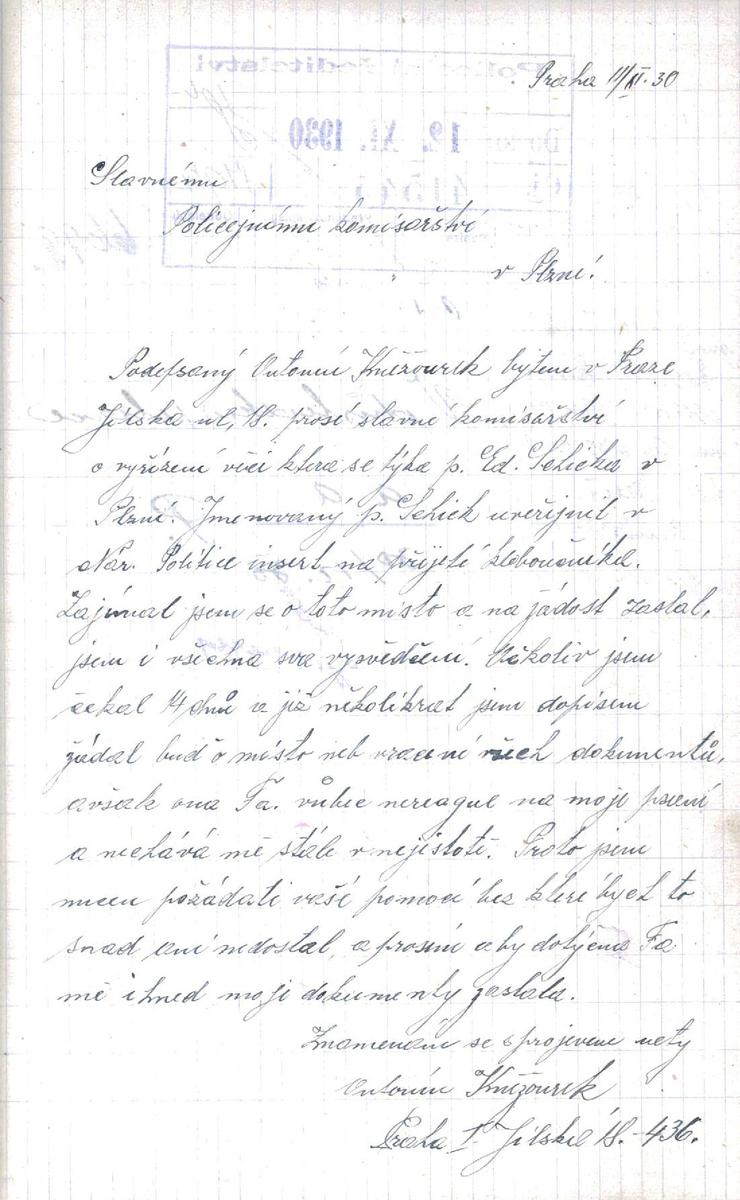 Praha 11/XI. 30
Slavnému
Policejnímu komisařství
v Plzni!
Podepsaný Antonín Kněžourek bytem v Praze
Jilská ul, 18. prosí slavné komisařství
o vyřízení věci ktera se týka p. Ed. Schicka v
Plzni. Jmenovaný p. Schick uveřejnil v
Nár. Politice insert na přijetí kloboučníka.
Zajímal jsem se o toto místo a na žádost zaslal,
jsem i všechna sva vysvědčení. Ačkoliv jsem
čekal 14 dnů a již několikrat jsem dopisem
žádal buď o místo neb vracení všech dokumentů,
avšak ona Fa. vůbec nereague na moje psaní
a nechává mě stále v nejistotě. Proto jsem
nucen požádati vaší pomoci bez kteri bych to
snad ani nedostal, a prosím aby dotyčna Fa
mě ihned moje dokumenty zaslala.
Znamenám se s projevem ucty
Antonín Kněžourek
Praha I. Jilská 18. - 436.
Policejní ředitelství
12. XI. 1930